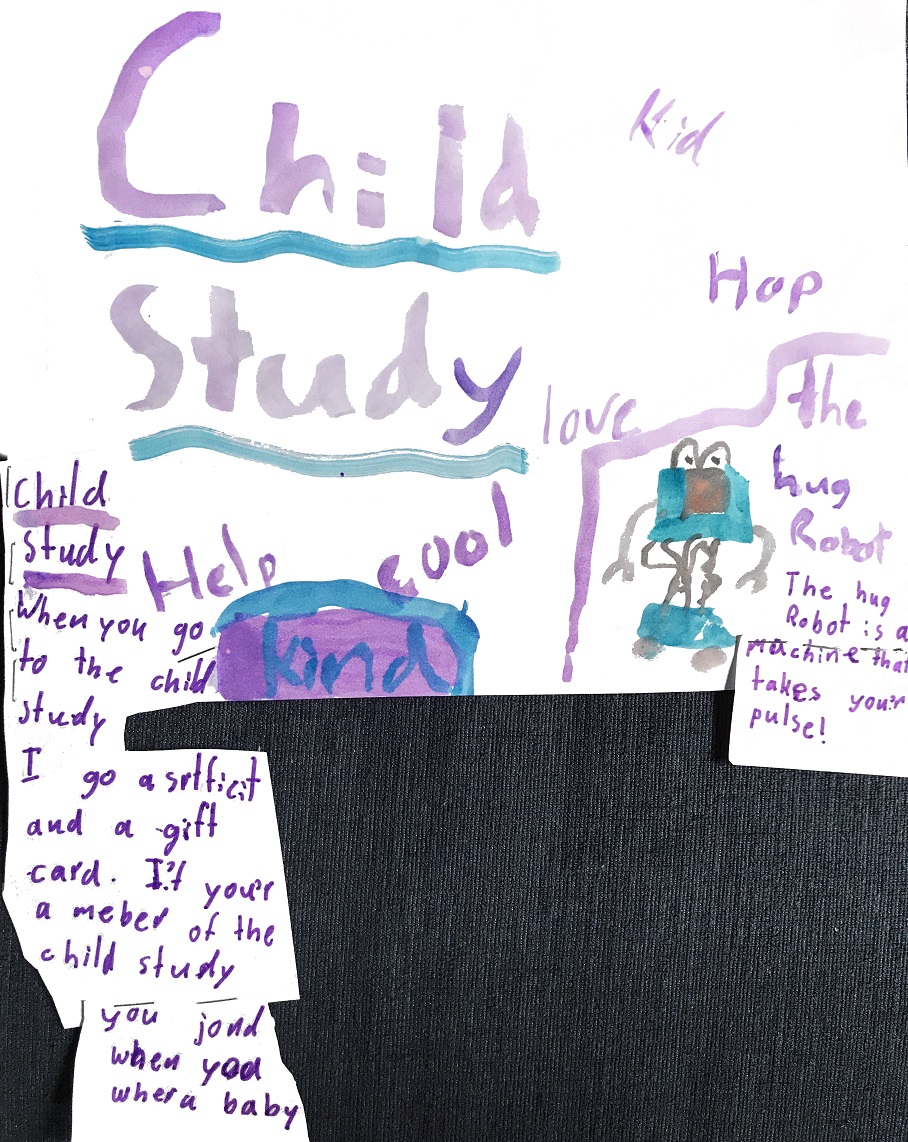 Child
Kid
Hop
Study
love
The
hug
Robot
The hug
Robot is a
machine that
takes your
pulse!
Help
cool
kind
Child
Study
When you go
to the child
study
I go a srtficit
and a gift
card. If your
a meber of the
child study
you jond
when you
wher a baby